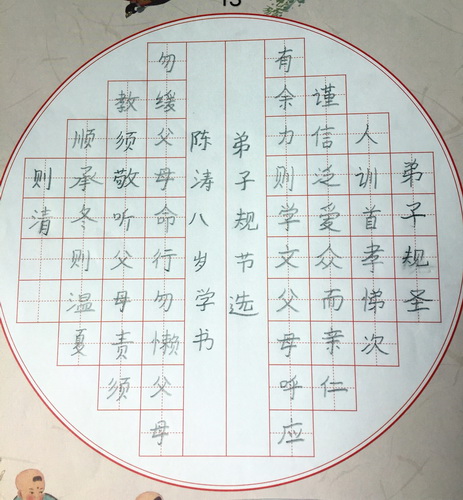 弟子规圣
人训首孝悌次
谨信泛爱众而亲仁
有余力则学文父母呼应
弟子规节选
陈涛八岁学书
勿缓父母命行勿懒父母
教须敬听父母责须
顺承冬则温夏
则清